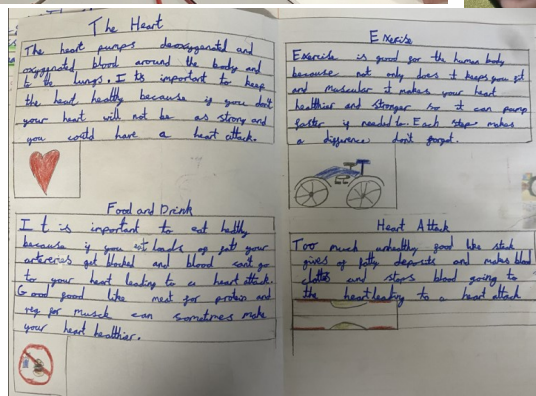 The Heart
The heart pumps deoxygenated and
oxygenated blood around the body and
to the lungs. I ts important to keep
the heart healthy because if you don't
your heart will not be as strong and
you could have a heart attack.
Food and Drink
It is important to eat healthy
because if you eat loads of fats your
arteries get blocked and blood can't go
to your heart leading to a heart attack.
Good food like meat for protein and
for muscle can sometimes make
your heart healthier.
Exerise
Exercise is good for the human body
because not only does it keeps you fit
and muscular it makes your heart
healthier and stronger so it can pump
faster if needed to. Each step makes
a difference don't forget.
Heart Attack
Too much unhealthy food like steak
gives of fatty deposits and makes blood
clottes and stops blood going to
the heart leading to a heart attack